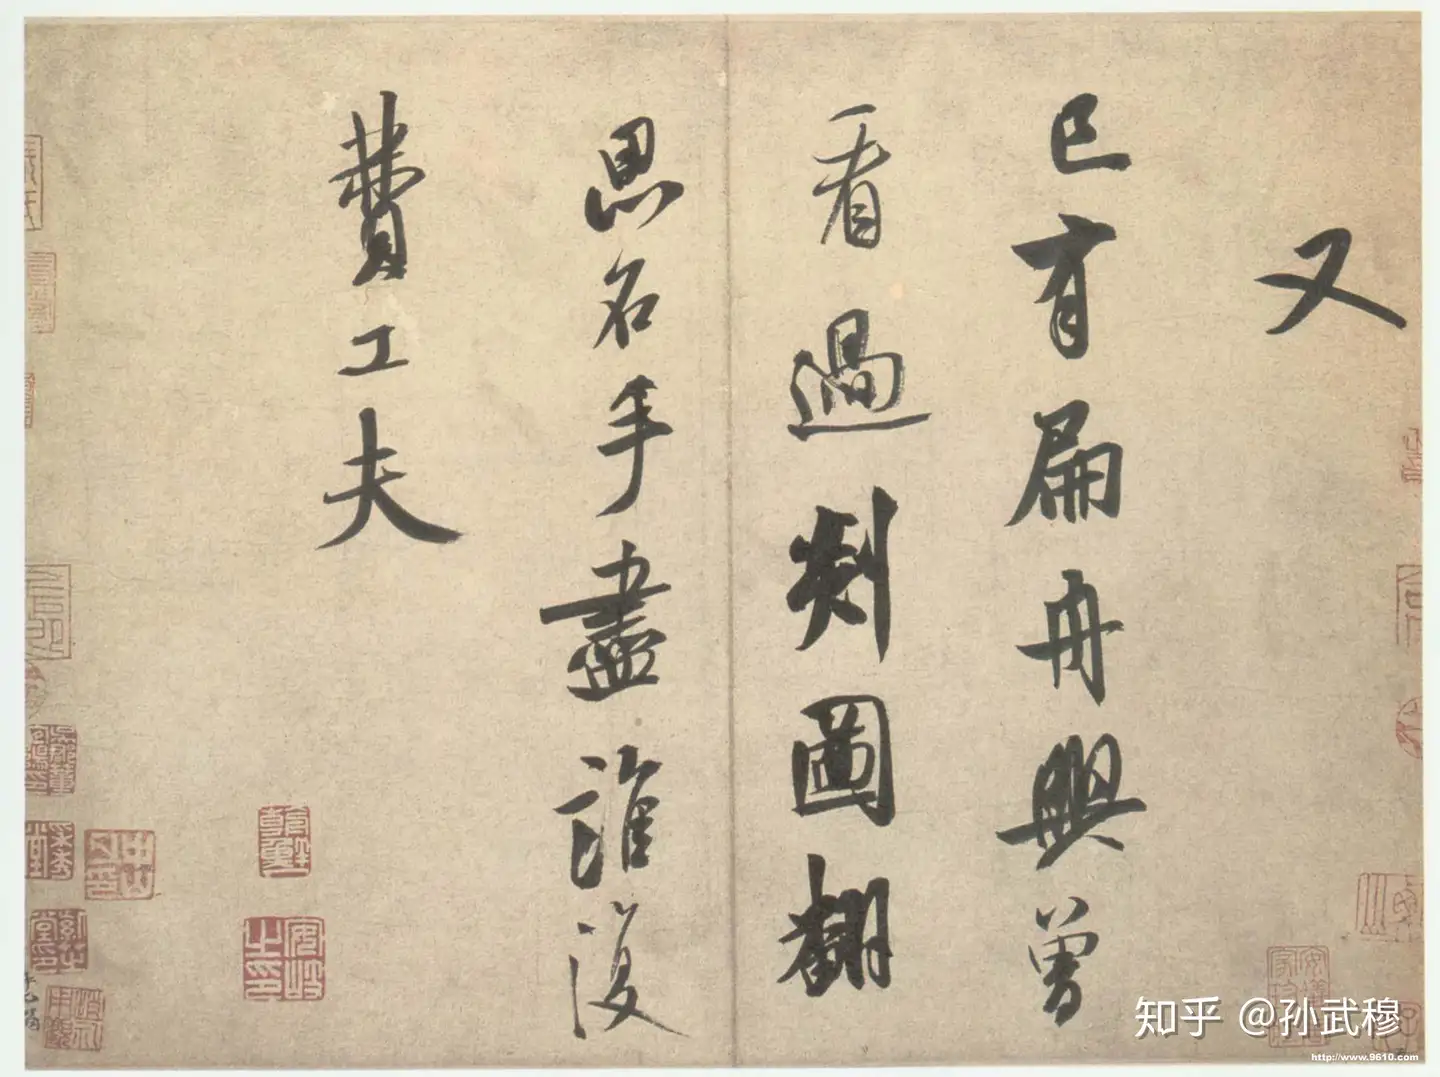 又
已有扁舟興曾
看過剡圖翻
思名手盡誰復
費工夫
安岐之印
知乎 @孙武穆
http://www.9610.com